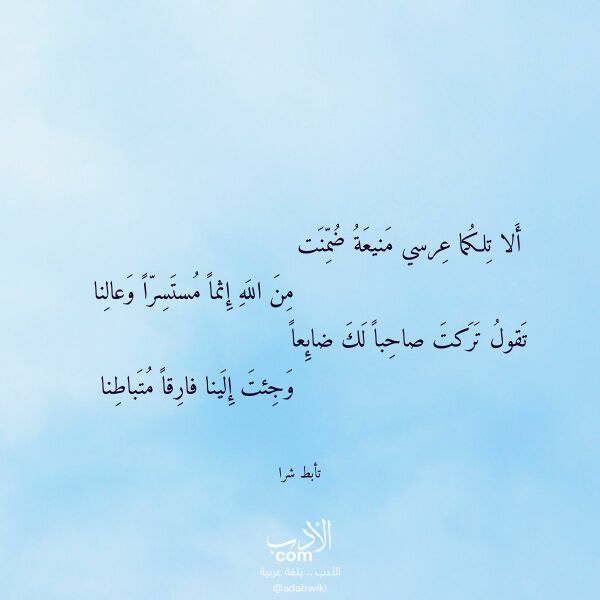 أَلا تِلكُما عِرسي مَنيعَةُ ضُمِّنَت
مِنَ اللَهِ إِثماً مُستَسِرّاً وَعالِنا
تَقولُ تَرَكتَ صاحِباً لَكَ ضائِعاً
وَجِئتَ إِلَينا فارِقاً مُتَباطِنا
تأبط شرا
الأدب
com
الأدب .. بلغة عربية
@adabwiki